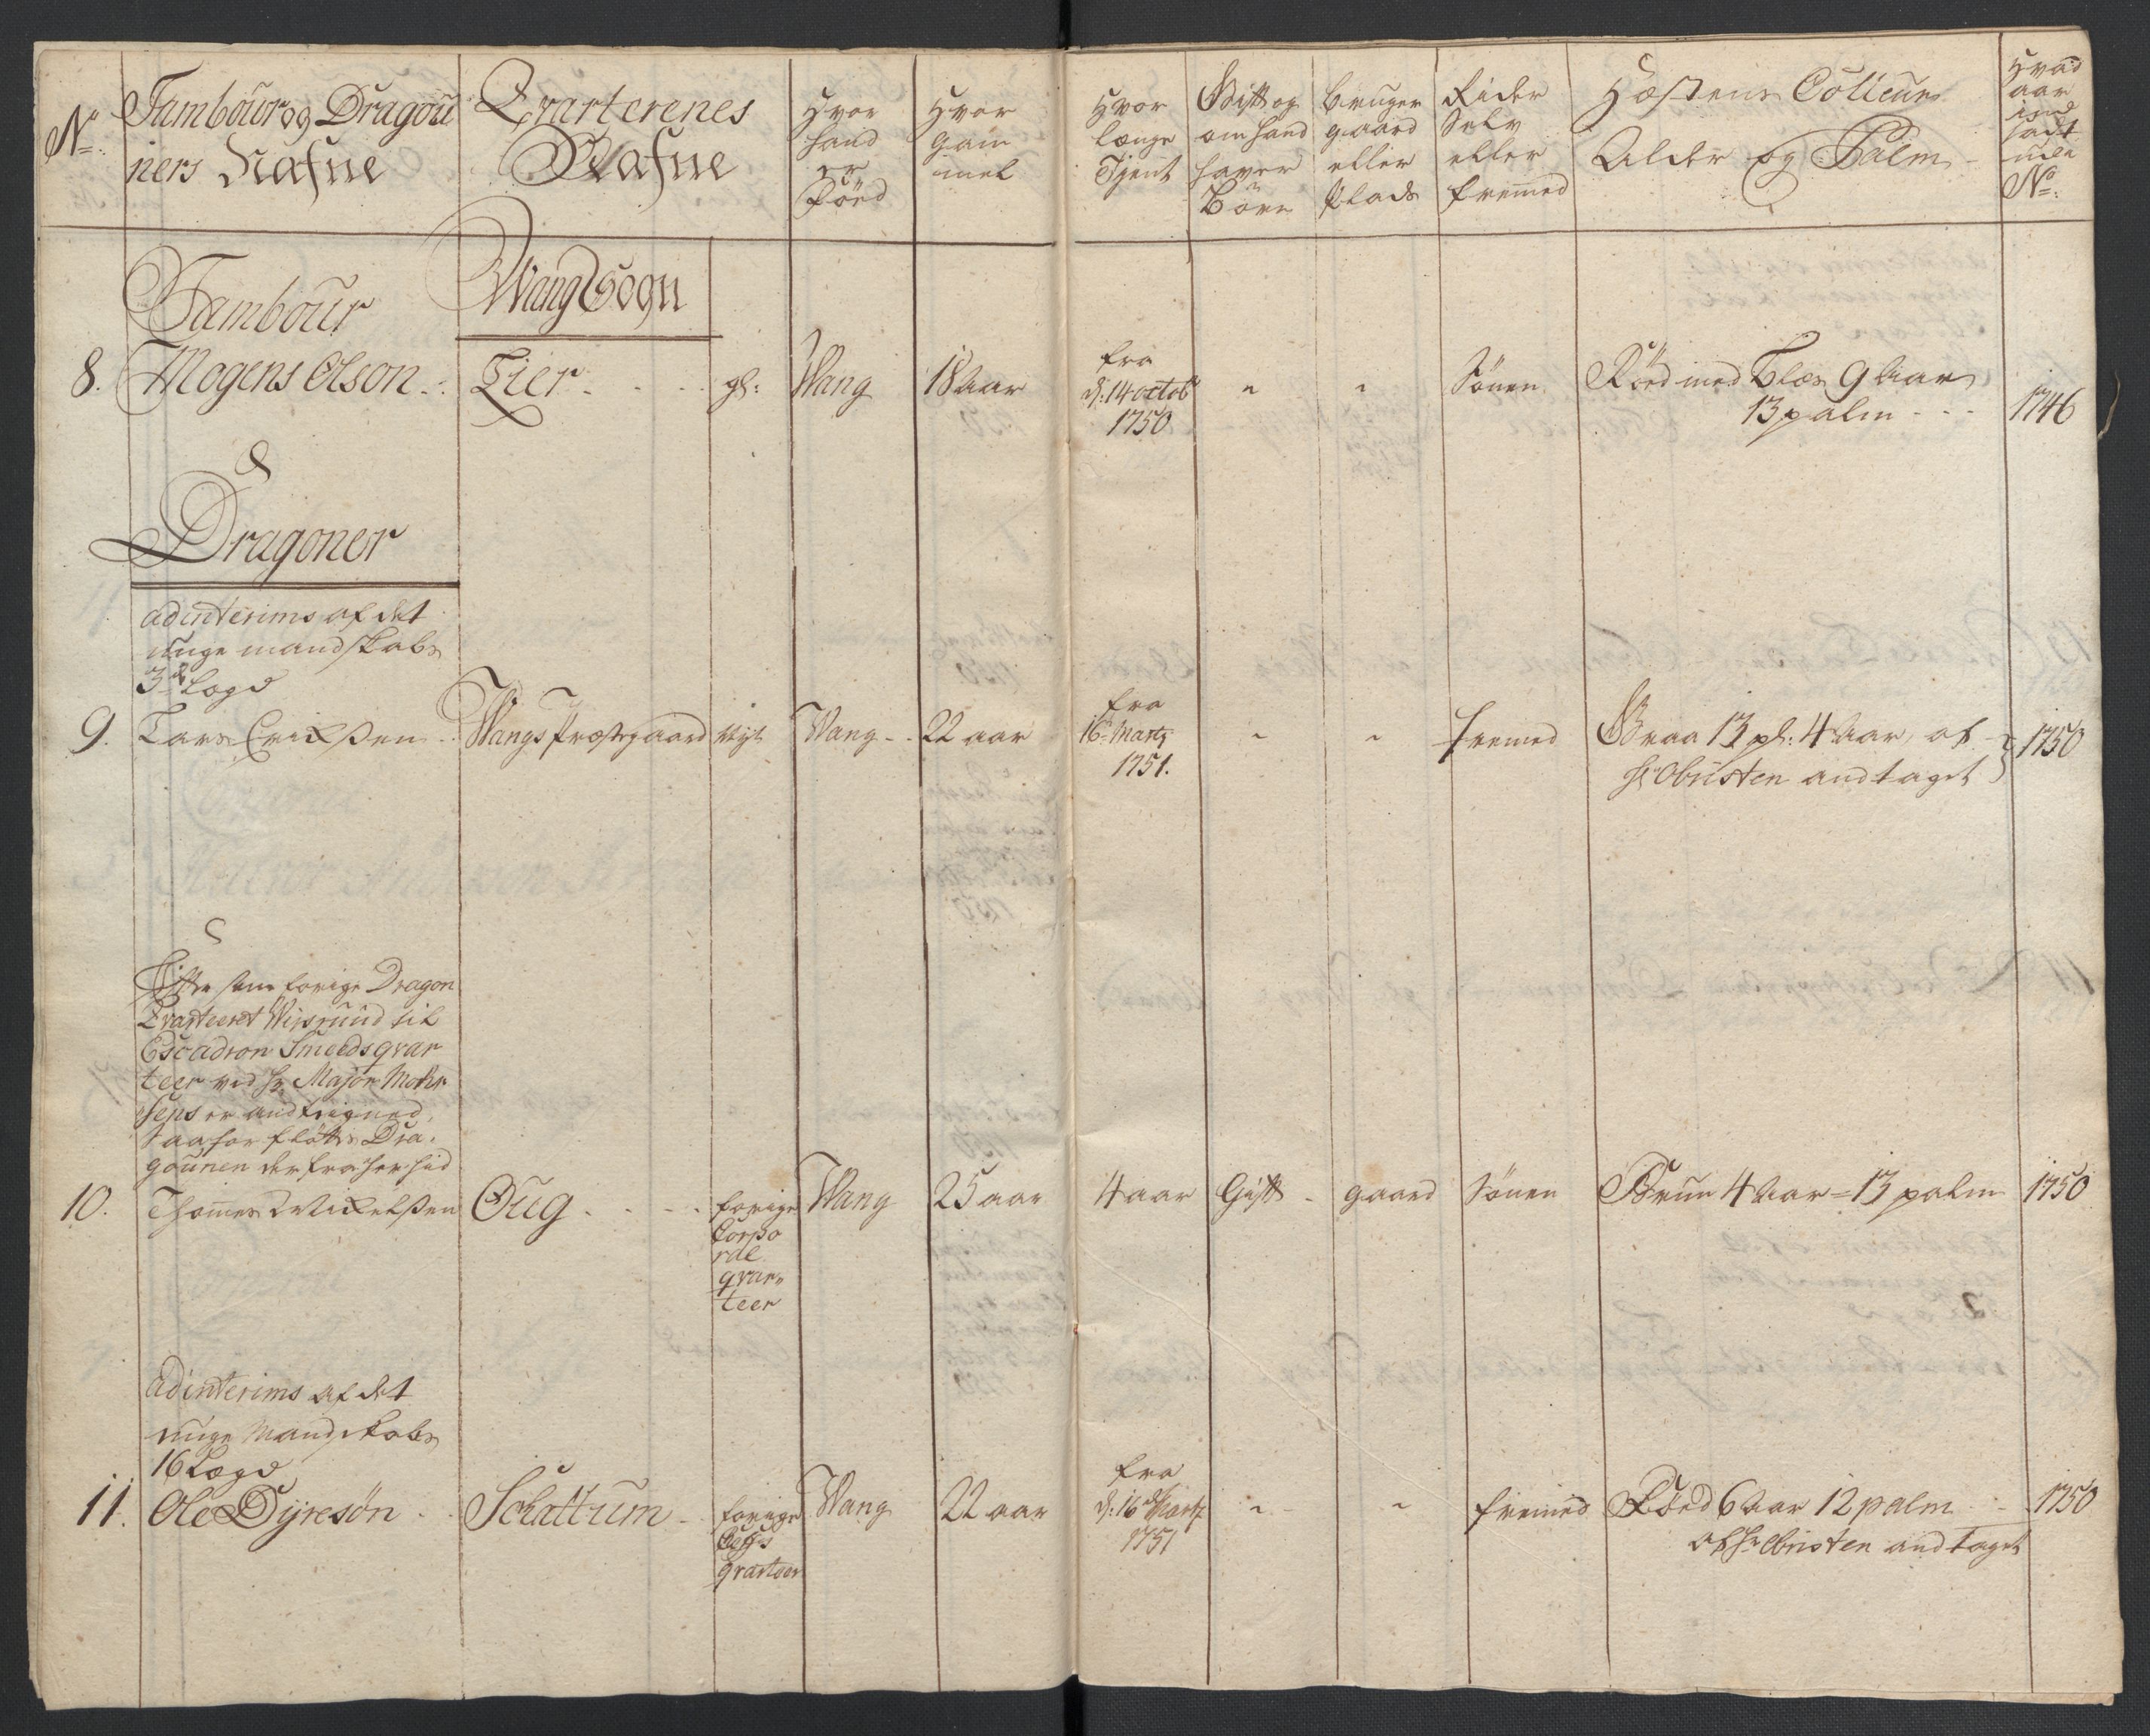 No:
Tambour og Dragou
ners Nafne
Qvarterenes
Nafne
Hvor
hand
er
Född
Hvor
gam
mel
Hvor
længe
Tjent
Gift og
om hand
haver
Börn
bruger
gaard
eller
Plads
Rider
Selv
eller
fremed
Hæstens Colleur
Alder og Palm
Hvad
aar
ind
satt
uden
No:
Tambour
Wang Sogn
8. Mogens Olson Lier gl: Wang 18 aar
fra
d: 14 octob
1750
" " Sönen
Röed med Blæs 9 aar
13 palm 1746
Dragoner
adinterims af det
unge mandskabs
3de Lægd
9. Lars Erixsen Wangs Præstegaard Wang 22 aar
fra
16 Marts
1751.
" " fremed
Graa 13 pl: 4 aar, af
hr Obristen andtaget 1750
Dragon
Qvarteeret til
Escadron Smeds qvar
teer ved hr Major
sens er
saa for fløttes Dra-
gounen der fra her hid
10. Thomes Mikelsen Oug
forige
Corpo
ral
qvar-
teer
Wang 25 aar 4 aar Gift gaard Sönen Brun 4 aar = 13 palm 1750
adinterims af det
unge Mandskabs
16 Lægd
11. Ole Dyresön Schattum
forige
qvarteer
Wang 22 aar
fra
d: 16 Marts
1751
" " fremed Röed 6 aar 12 palm 1750
af hr Obristen andtaget